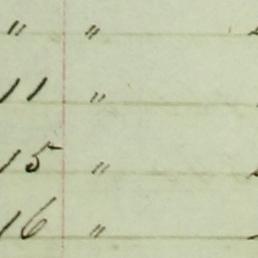 " "
11 "
15 "
16 "